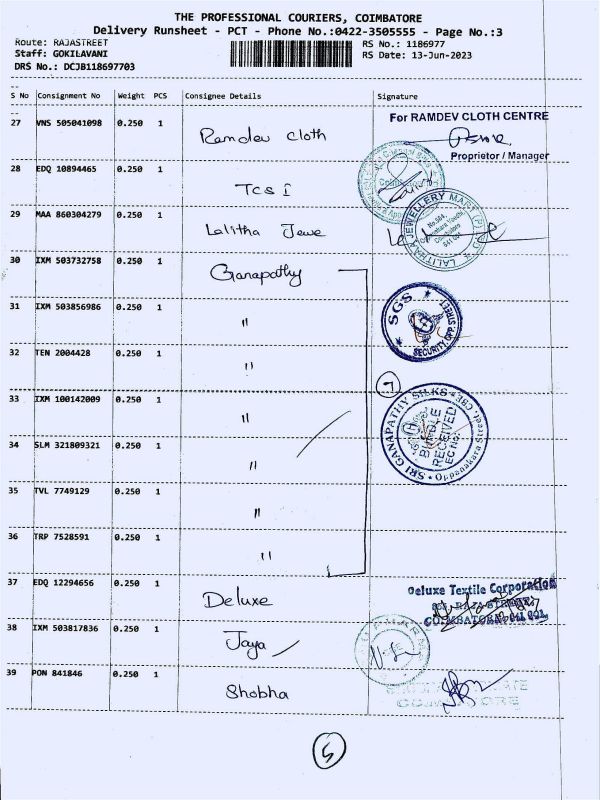 THE PROFESSIONAL COURIERS, COIMBATORE
Delivery Runsheet - PCT - Phone No.:0422-3505555 - Page No.:3
Route: RAJASTREET
RS No.: 1186977
Staff: GOKILAVANI
RS Date: 13-Jun-2023
DRS No.: DCJB118697703
S No Consignment No Weight PCS Consignee Details Signature
For RAMDEV CLOTH CENTRE
27 VNS 505041098 0.250 1 Ramdev cloth
Proprietor / Manager
28 EDQ 10894465 0.250 1 TCS I
29 MAA 860304279 0.250 1 Lalitha Jewe
LALITHAA JEWELLERY MART (P)
30 IXM 503732758 0.250 1 Ganapathy
31 IXM 503856986 0.250 1 "
SGS
SECURITY OPP. STREET
32 TEN 2004428 0.250 1 "
33 IXM 100142009 0.250 1 "
7
SRI GANAPATHY SILKS CBE. Oppanakara Street
BUNDLE
RECEIVED
34 SLM 321809321 0.250 1 "
35 TVL 7749129 0.250 1 "
36 TRP 7528591 0.250 1 "
37 EDQ 12294656 0.250 1 Deluxe
Deluxe Textile Corporation
COIMBATORE-641 001.
38 IXM 503817836 0.250 1 Jaya
39 PON 841846 0.250 1 Shobha
COIMBATORE
5